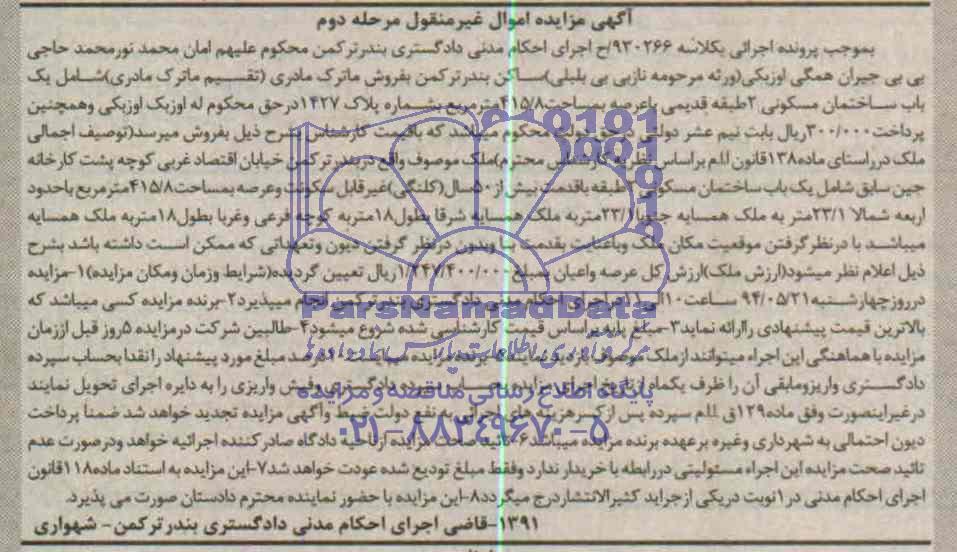 آگهی مزایده اموال غیرمنقول مرحله دوم
بموجب پرونده اجرائی بکلاسه ۹۳۰۲۶۶/ح اجرای احکام مدنی دادگستری بندرترکمن محکوم علیهم امان محمد نورمحمد حاجی
بی بی جیران همگی اوزبکی(ورثه مرحومه نازبی بی بلیلی)ساکن بندرترکمن بفروش ماترک مادری (تقسیم ماترک مادری)شامل یک
باب ساختمان مسکونی ۲طبقه قدیمی باعرصه بمساحت۴۱۵/۸مترمربع بشماره پلاک ۱۴۲۷درحق محکوم له اوزبک اوزبکی وهمچنین
پرداخت۳۰۰/۰۰۰ریال بابت نیم عشر دولتی درحق دولت محکوم میباشد که باقیمت کارشناس بشرح ذیل بفروش میرسد(توصیف اجمالی
ملک درراستای ماده۱۳۸قانون ا.ا.م براساس نظریه کارشناس محترم)ملک موصوف واقع دربندرترکمن خیابان اقتصاد غربی کوچه پشت کارخانه
جین سابق شامل یک باب ساختمان مسکونی ۲طبقه باقدمت بیش از۵۰سال(کلنگی)غیرقابل سکونت وعرصه بمساحت۴۱۵/۸مترمربع باحدود
اربعه شمالا ۲۳/۱متر به ملک همسایه جنوبا۲۳/۱متربه ملک همسایه شرقا بطول۱۸متربه کوچه فرعی وغربا بطول۱۸متربه ملک همسایه
میباشد با درنظرگرفتن موقعیت مکان ملک وباعنایت بقدمت بنا وبدون درنظر گرفتن دیون وتعهداتی که ممکن است داشته باشد بشرح
ذیل اعلام نظر میشود(ارزش ملک)ارزش کل عرصه واعیان بمبلغ۱/۲۴۷/۴۰۰/۰۰۰ریال تعیین گردیده(شرایط وزمان ومکان مزایده)۱-مزایده
درروزچهارشنبه۹۴/۰۵/۲۱ ساعت۱۰الی۱۱دراجرای احکام مدنی دادگستری بندرترکمن انجام میپذیرد۲-برنده مزایده کسی میباشد که
بالاترین قیمت پیشنهادی راارائه نماید۳-مبلغ پایه براساس قیمت کارشناسی شده شروع میشود۴-طالبین شرکت درمزایده ۵روز قبل اززمان
مزایده باهماهنگی این اجراء میتوانند ازملک موصوف بازدید نمایند۵-برنده مزایده میبایست ۱۰درصد مبلغ مورد پیشنهاد را نقدا بحساب سپرده
دادگستری واریزومابقی آن را ظرف یکماه ازتاریخ اجرای مزایده بحساب سپرده دادگستری وفیش واریزی را به دایره اجرای تحویل نمایند
درغیراینصورت وفق ماده۱۲۹ق ا.ا.م سپرده پس ازکسرهزینه های اجرائی به نفع دولت ضبط وآگهی مزایده تجدید خواهد شد ضمنا پرداخت
دیون احتمالی به شهرداری وغیره برعهده برنده مزایده میباشد۶-تائید صحت مزایده ازناحیه دادگاه صادرکننده اجرائیه خواهد ودرصورت عدم
تائید صحت مزایده این اجراء مسئولیتی دررابطه باخریدار ندارد وفقط مبلغ تودیع شده عودت خواهد شد۷-این مزایده به استناد ماده۱۱۸قانون
اجرای احکام مدنی در ۱نوبت دریکی ازجراید کثیرالانتشاردرج میگردد۸-این مزایده با حضور نماینده محترم دادستان صورت می پذیرد.
۱۳۹۱-قاضی اجرای احکام مدنی دادگستری بندرترکمن- شهواری
ParsNamadData
پایگاه اطلاع رسانی مناقصه و مزایده
۰۲۱-۸۸۳۴۹۶۷۰-۵